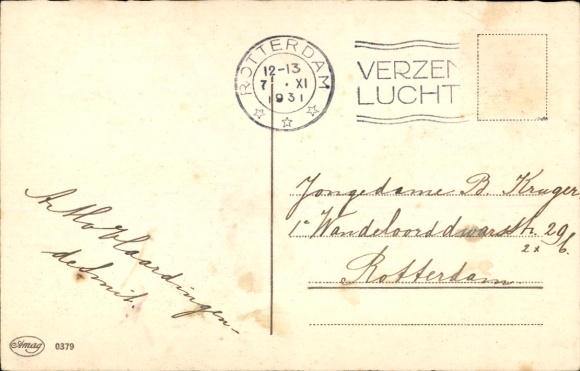 ROTTERDAM
12-13
7 · XI
1931
VERZEN
LUCHT
Jongedame B. Kruger
1e Wandeloorddwarsstr. 29b.
2x
Rotterdam
Vlaardingen-
de Smit.
Amag 0379